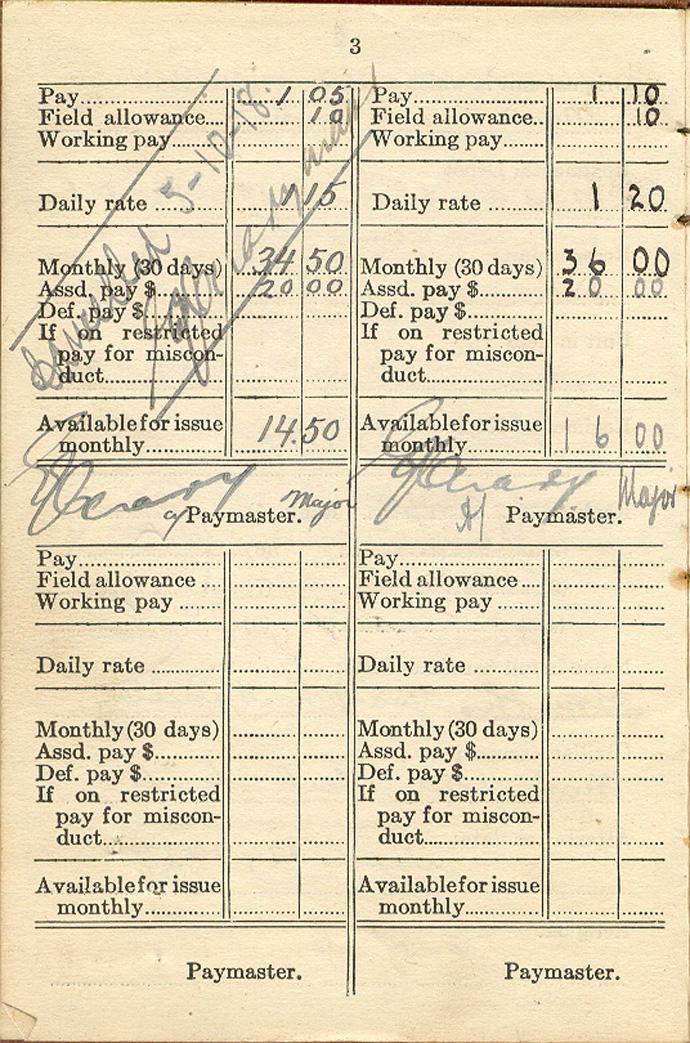 3
Pay.......... 1 05
Field allowance... 10
Working pay...
Daily rate .......... 1 15
Monthly (30 days) 34 50
Assd. pay $.......... 20 00
Def. pay $..........
If on restricted
pay for miscon-
duct..........
Available for issue
monthly.......... 14.50
Cancelled 3-10-18.
Paymaster. Major
Pay.......... 1 10
Field allowance.. 10
Working pay....
Daily rate .......... 1 20
Monthly (30 days) 36 00
Assd. pay $.......... 20 00
Def. pay $..........
If on restricted
pay for miscon-
duct..........
Available for issue
monthly.......... 16 00
Paymaster. Major
Pay..........
Field allowance ....
Working pay ........
Daily rate ..........
Monthly (30 days)
Assd. pay $..........
Def. pay $..........
If on restricted
pay for miscon-
duct..........
Available for issue
monthly..........
Paymaster.
Pay..........
Field allowance ....
Working pay ........
Daily rate ..........
Monthly (30 days)
Assd. pay $..........
Def. pay $..........
If on restricted
pay for miscon-
duct..........
Available for issue
monthly..........
Paymaster.